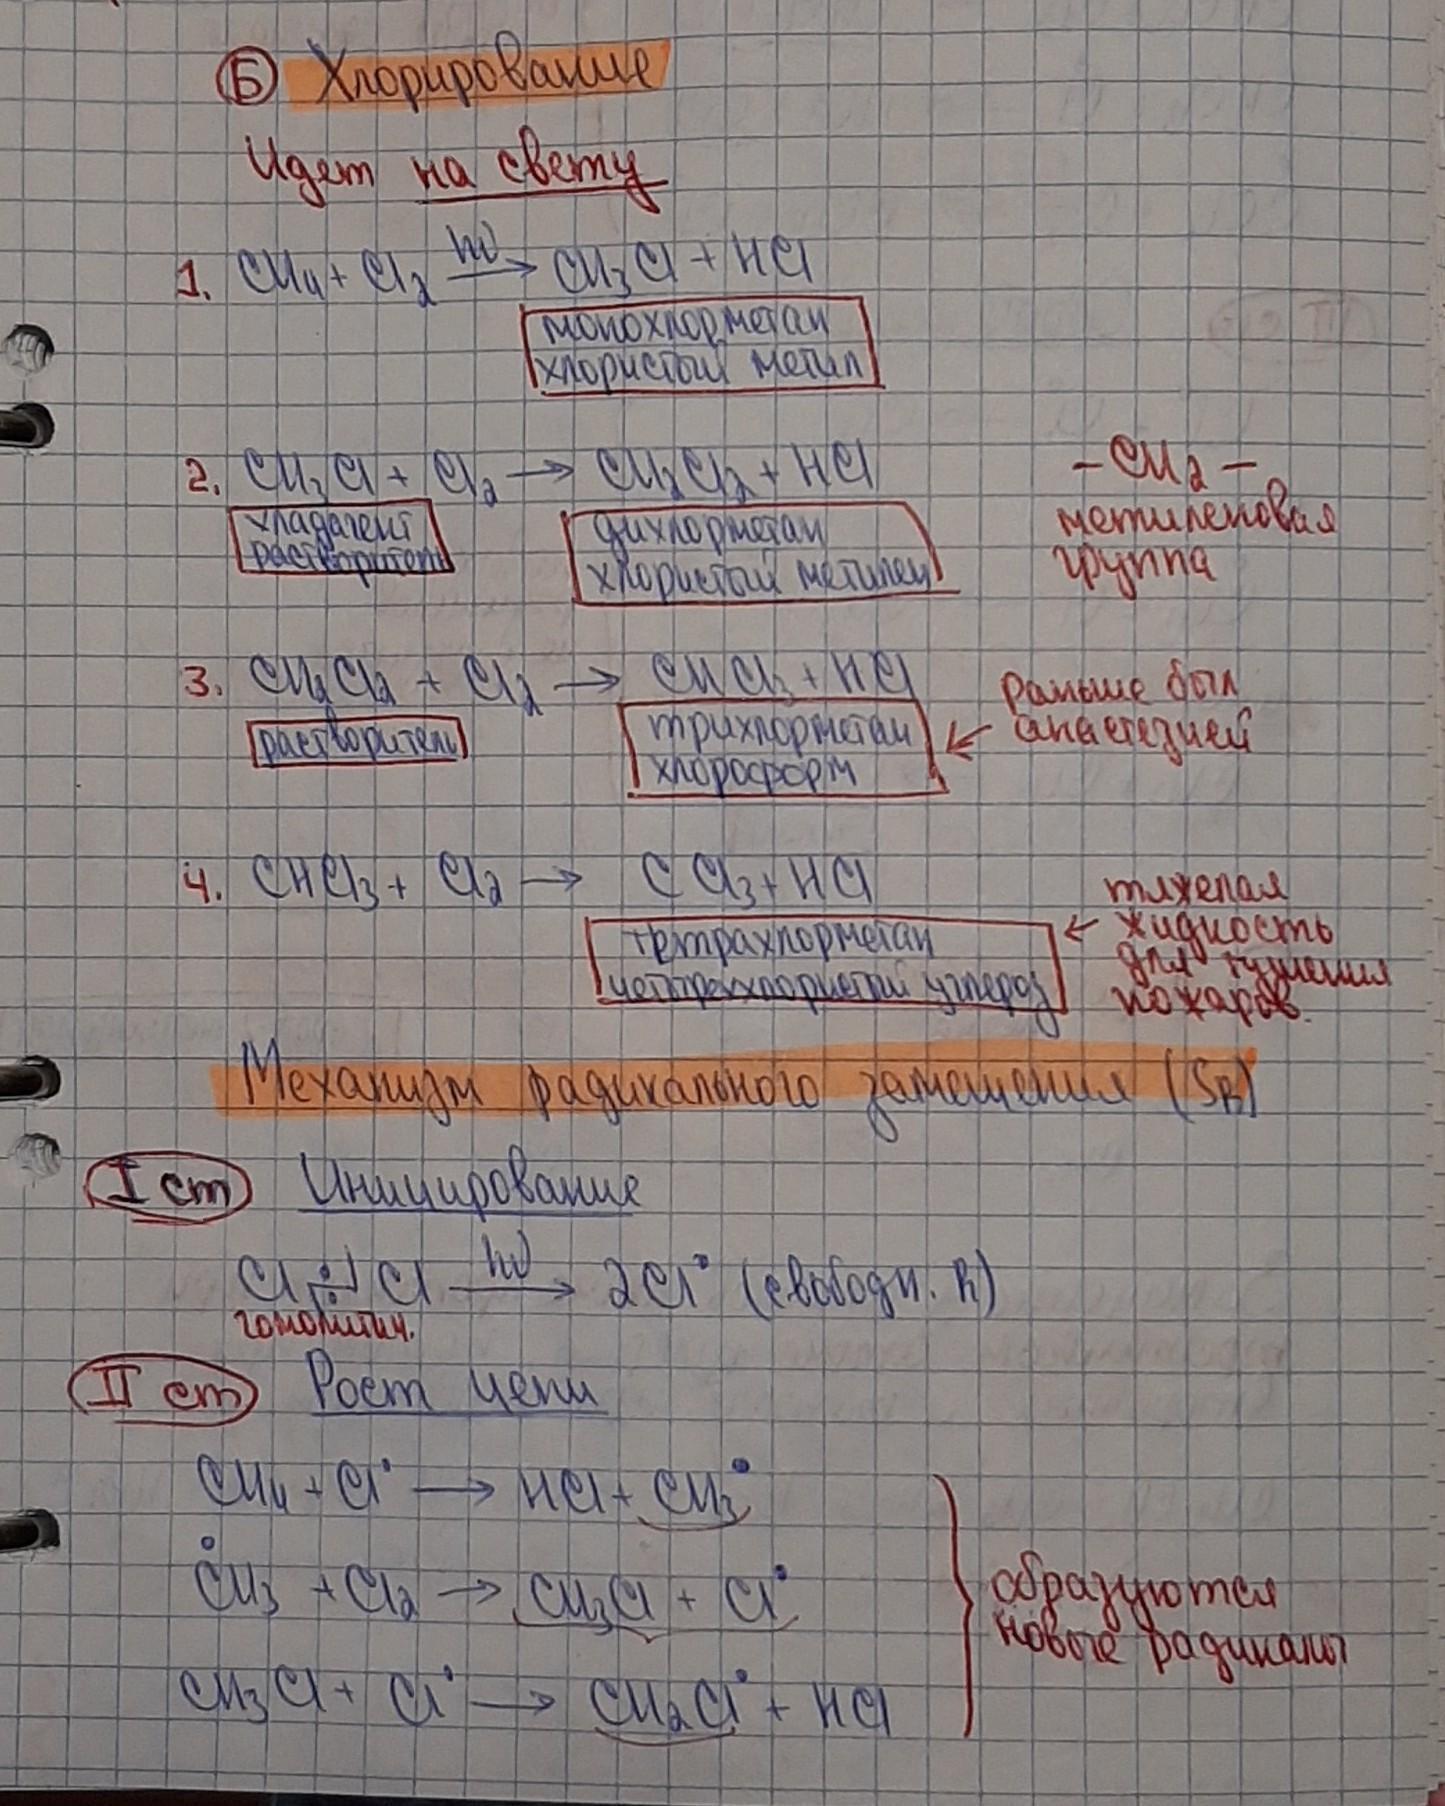 Б Хлорирование
Идет на свету
1. CH4 + Cl2 hν → CH3Cl + HCl
монохлорметан
хлористый метил
2. CH3Cl + Cl2 → CH2Cl2 + HCl
хладагент
растворитель
дихлорметан
хлористый метилен
– CH2 –
метиленовая
группа
3. CH2Cl2 + Cl2 → CHCl3 + HCl
растворитель
трихлорметан
хлороформ
← раньше был
анастезией
4. CHCl3 + Cl2 → CCl3 + HCl
тетрахлорметан
четыреххлористый углерод
← тяжелая
жидкость
для тушения
пожаров.
Механизм радикального замещения (SR)
I ст Инициирование
Cl : Cl hν → 2Cl• (свободн. R)
гомолитич.
II ст Рост цепи
CH4 + Cl• → HCl + CH3•
•CH3 + Cl2 → CH3Cl + Cl•
CH3Cl + Cl• → CH2Cl• + HCl
образуются
новые радикалы